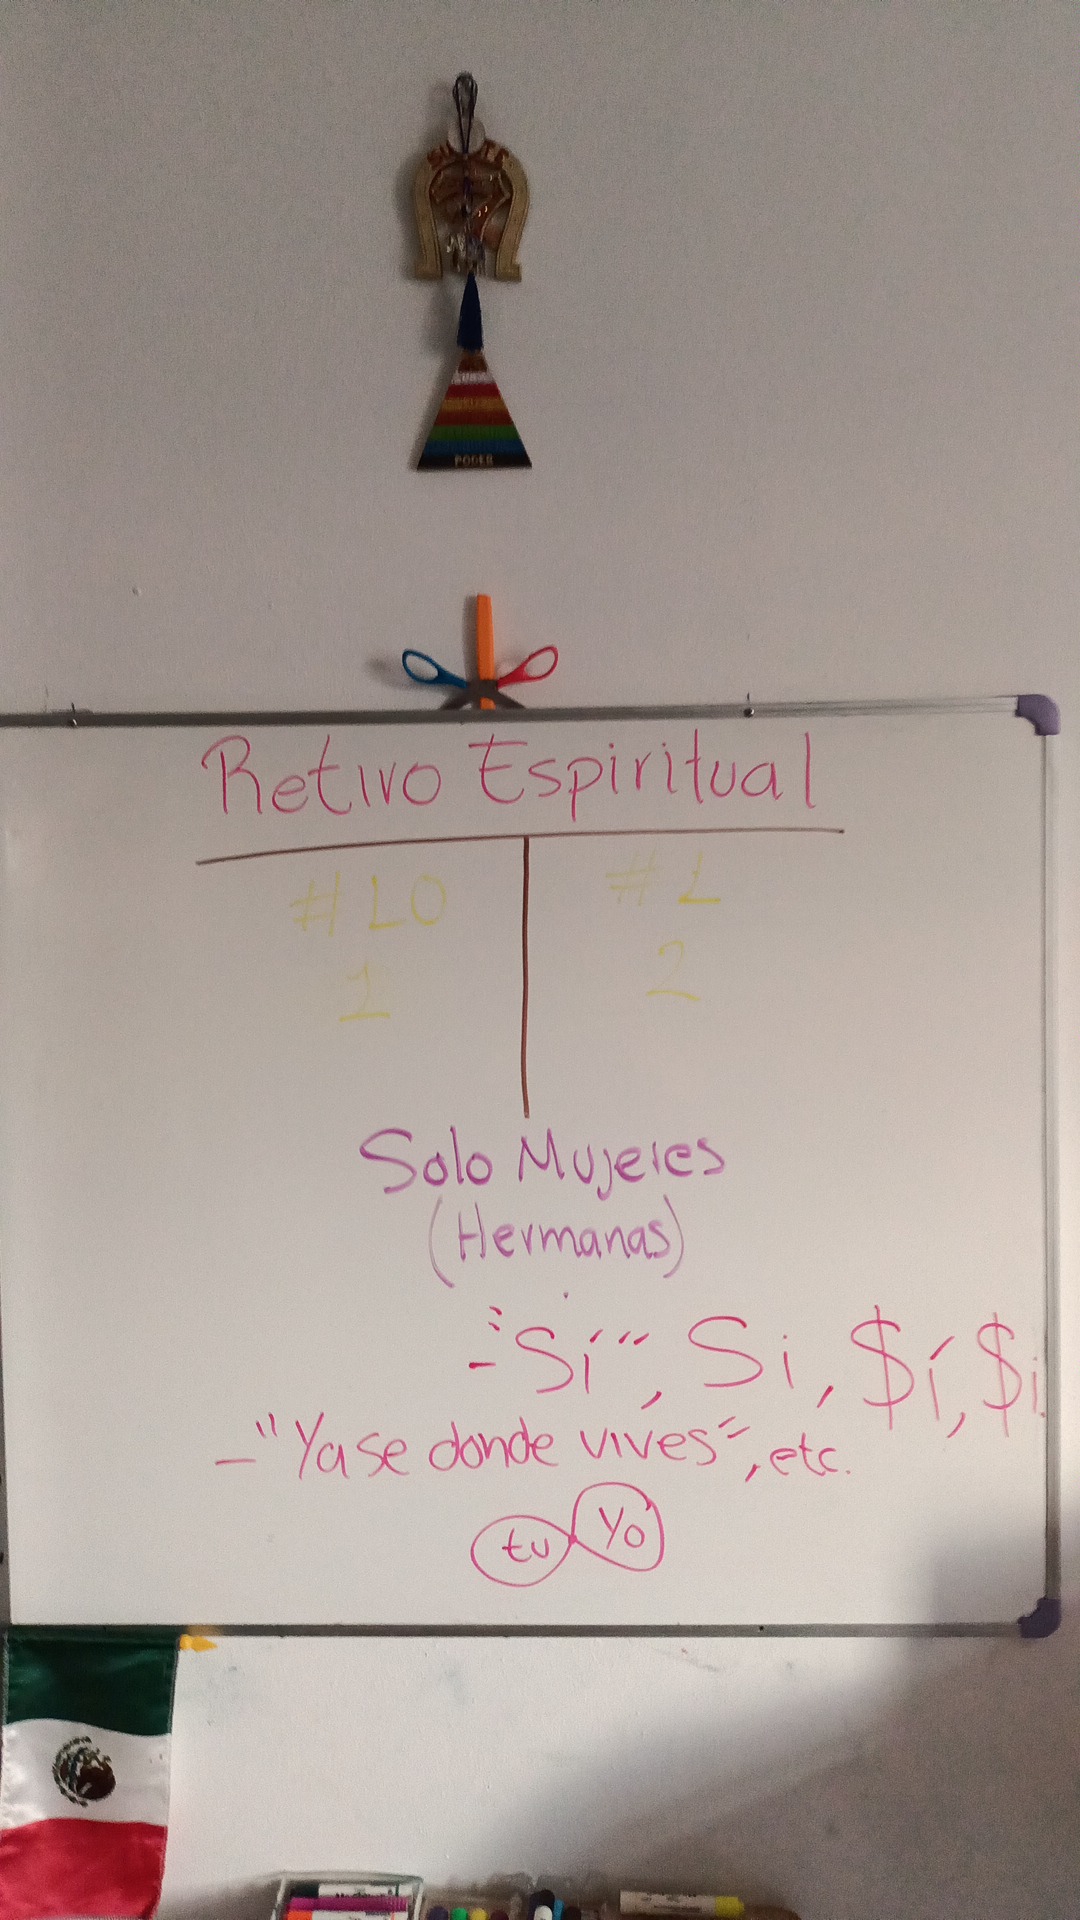 PODER
Retiro Espiritual
#10 #1
1 2
Solo Mujeres
(Hermanas)
-"Sí", Si, $í, $i.
-"Yase donde vives", etc.
tu Yo